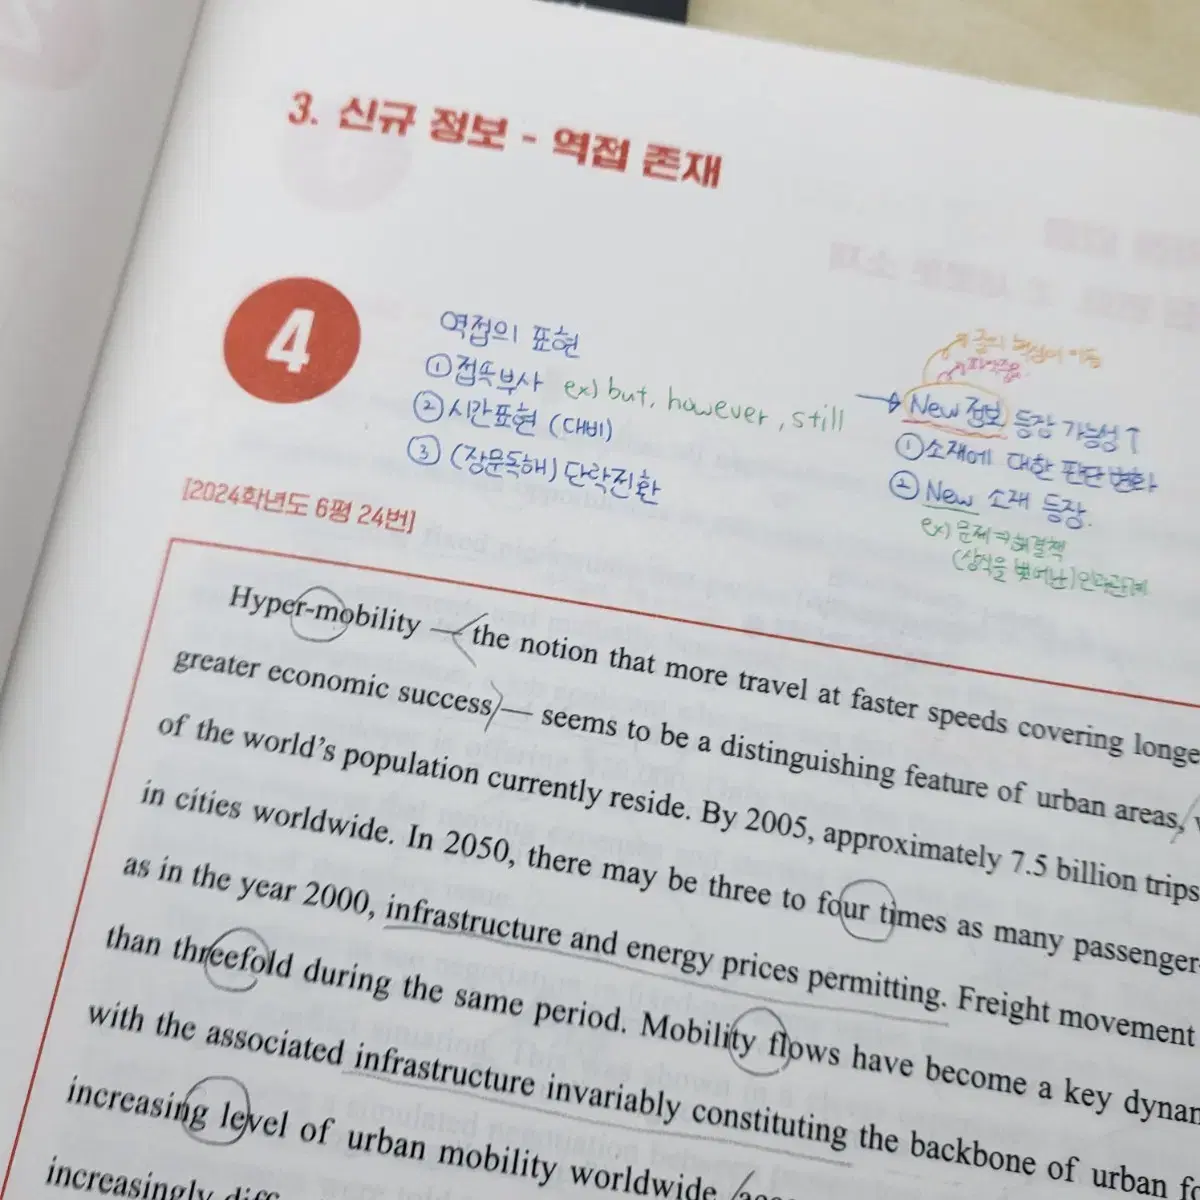 3. 신규 정보 - 역접 존재
4
역접의 표현
① 접속부사 ex) but, however, still
② 시간표현 (대비)
③ (장문독해) 단락전환
이동
→ New 정보 등장 가능성↑
① 소재에 대한 판단 변화
② New 소재 등장.
ex) 문제⇒해결책
(상식을 벗어난) 인과관계
[2024학년도 6평 24번]
Hyper-mobility — the notion that more travel at faster speeds covering longe
greater economic success — seems to be a distinguishing feature of urban areas,
of the world's population currently reside. By 2005, approximately 7.5 billion trips
in cities worldwide. In 2050, there may be three to four times as many passenger-
as in the year 2000, infrastructure and energy prices permitting. Freight movement
than threefold during the same period. Mobility flows have become a key dynam
with the associated infrastructure invariably constituting the backbone of urban fo
increasing level of urban mobility worldwide
increasingly diff